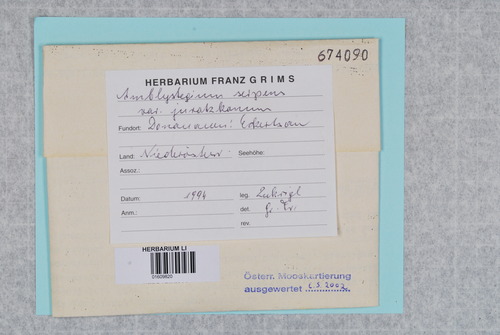 674090
HERBARIUM FRANZ GRIMS
Amblystegium serpens
var. juratzkanum
Fundort: Donauauen: Eckertsau
Land: Niederöster. Seehöhe:
Assoz.:
Datum: 1994 leg.
Anm.: det. Gr. Fr.
rev.
HERBARIUM LI
01609820
Österr. Mooskartierung
ausgewertet 2002